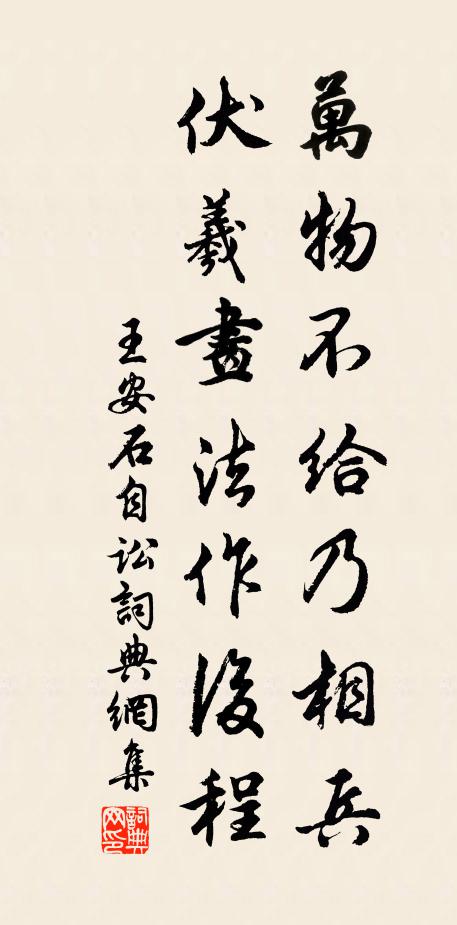 萬物不給乃相兵
伏羲畫法作後程
王安石自訟詞典網集
詞典網印